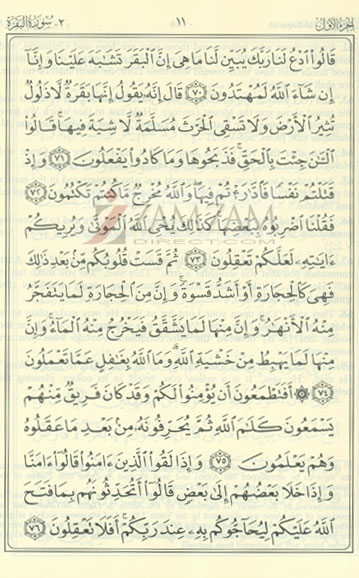 الجزء الأول ١١ ٢- سورة البقرة
قَالُوا۟ ٱدْعُ لَنَا رَبَّكَ يُبَيِّن لَّنَا مَا هِىَ إِنَّ ٱلْبَقَرَ تَشَـٰبَهَ عَلَيْنَا وَإِنَّآ
إِن شَآءَ ٱللَّهُ لَمُهْتَدُونَ ٧٠ قَالَ إِنَّهُۥ يَقُولُ إِنَّهَا بَقَرَةٌ لَّا ذَلُولٌ
تُثِيرُ ٱلْأَرْضَ وَلَا تَسْقِى ٱلْحَرْثَ مُسَلَّمَةٌ لَّا شِيَةَ فِيهَا ۚ قَالُوا۟
ٱلْـَٔـٰنَ جِئْتَ بِٱلْحَقِّ ۚ فَذَبَحُوهَا وَمَا كَادُوا۟ يَفْعَلُونَ ٧١ وَإِذْ
قَتَلْتُمْ نَفْسًا فَٱدَّٰرَْٰٔتُمْ فِيهَا ۖ وَٱللَّهُ مُخْرِجٌ مَّا كُنتُمْ تَكْتُمُونَ ٧٢
فَقُلْنَا ٱضْرِبُوهُ بِبَعْضِهَا ۚ كَذَٰلِكَ يُحْىِ ٱللَّهُ ٱلْمَوْتَىٰ وَيُرِيكُمْ
ءَايَـٰتِهِۦ لَعَلَّكُمْ تَعْقِلُونَ ٧٣ ثُمَّ قَسَتْ قُلُوبُكُم مِّنۢ بَعْدِ ذَٰلِكَ
فَهِىَ كَٱلْحِجَارَةِ أَوْ أَشَدُّ قَسْوَةً ۚ وَإِنَّ مِنَ ٱلْحِجَارَةِ لَمَا يَتَفَجَّرُ
مِنْهُ ٱلْأَنْهَـٰرُ ۚ وَإِنَّ مِنْهَا لَمَا يَشَّقَّقُ فَيَخْرُجُ مِنْهُ ٱلْمَآءُ ۚ وَإِنَّ
مِنْهَا لَمَا يَهْبِطُ مِنْ خَشْيَةِ ٱللَّهِ ۗ وَمَا ٱللَّهُ بِغَـٰفِلٍ عَمَّا تَعْمَلُونَ
٧٤ ۞ أَفَتَطْمَعُونَ أَن يُؤْمِنُوا۟ لَكُمْ وَقَدْ كَانَ فَرِيقٌ مِّنْهُمْ
يَسْمَعُونَ كَلَـٰمَ ٱللَّهِ ثُمَّ يُحَرِّفُونَهُۥ مِنۢ بَعْدِ مَا عَقَلُوهُ
وَهُمْ يَعْلَمُونَ ٧٥ وَإِذَا لَقُوا۟ ٱلَّذِينَ ءَامَنُوا۟ قَالُوٓا۟ ءَامَنَّا
وَإِذَا خَلَا بَعْضُهُمْ إِلَىٰ بَعْضٍ قَالُوٓا۟ أَتُحَدِّثُونَهُم بِمَا فَتَحَ
ٱللَّهُ عَلَيْكُمْ لِيُحَآجُّوكُم بِهِۦ عِندَ رَبِّكُمْ ۚ أَفَلَا تَعْقِلُونَ ٧٦
ZAMZAM
DIRECT.COM